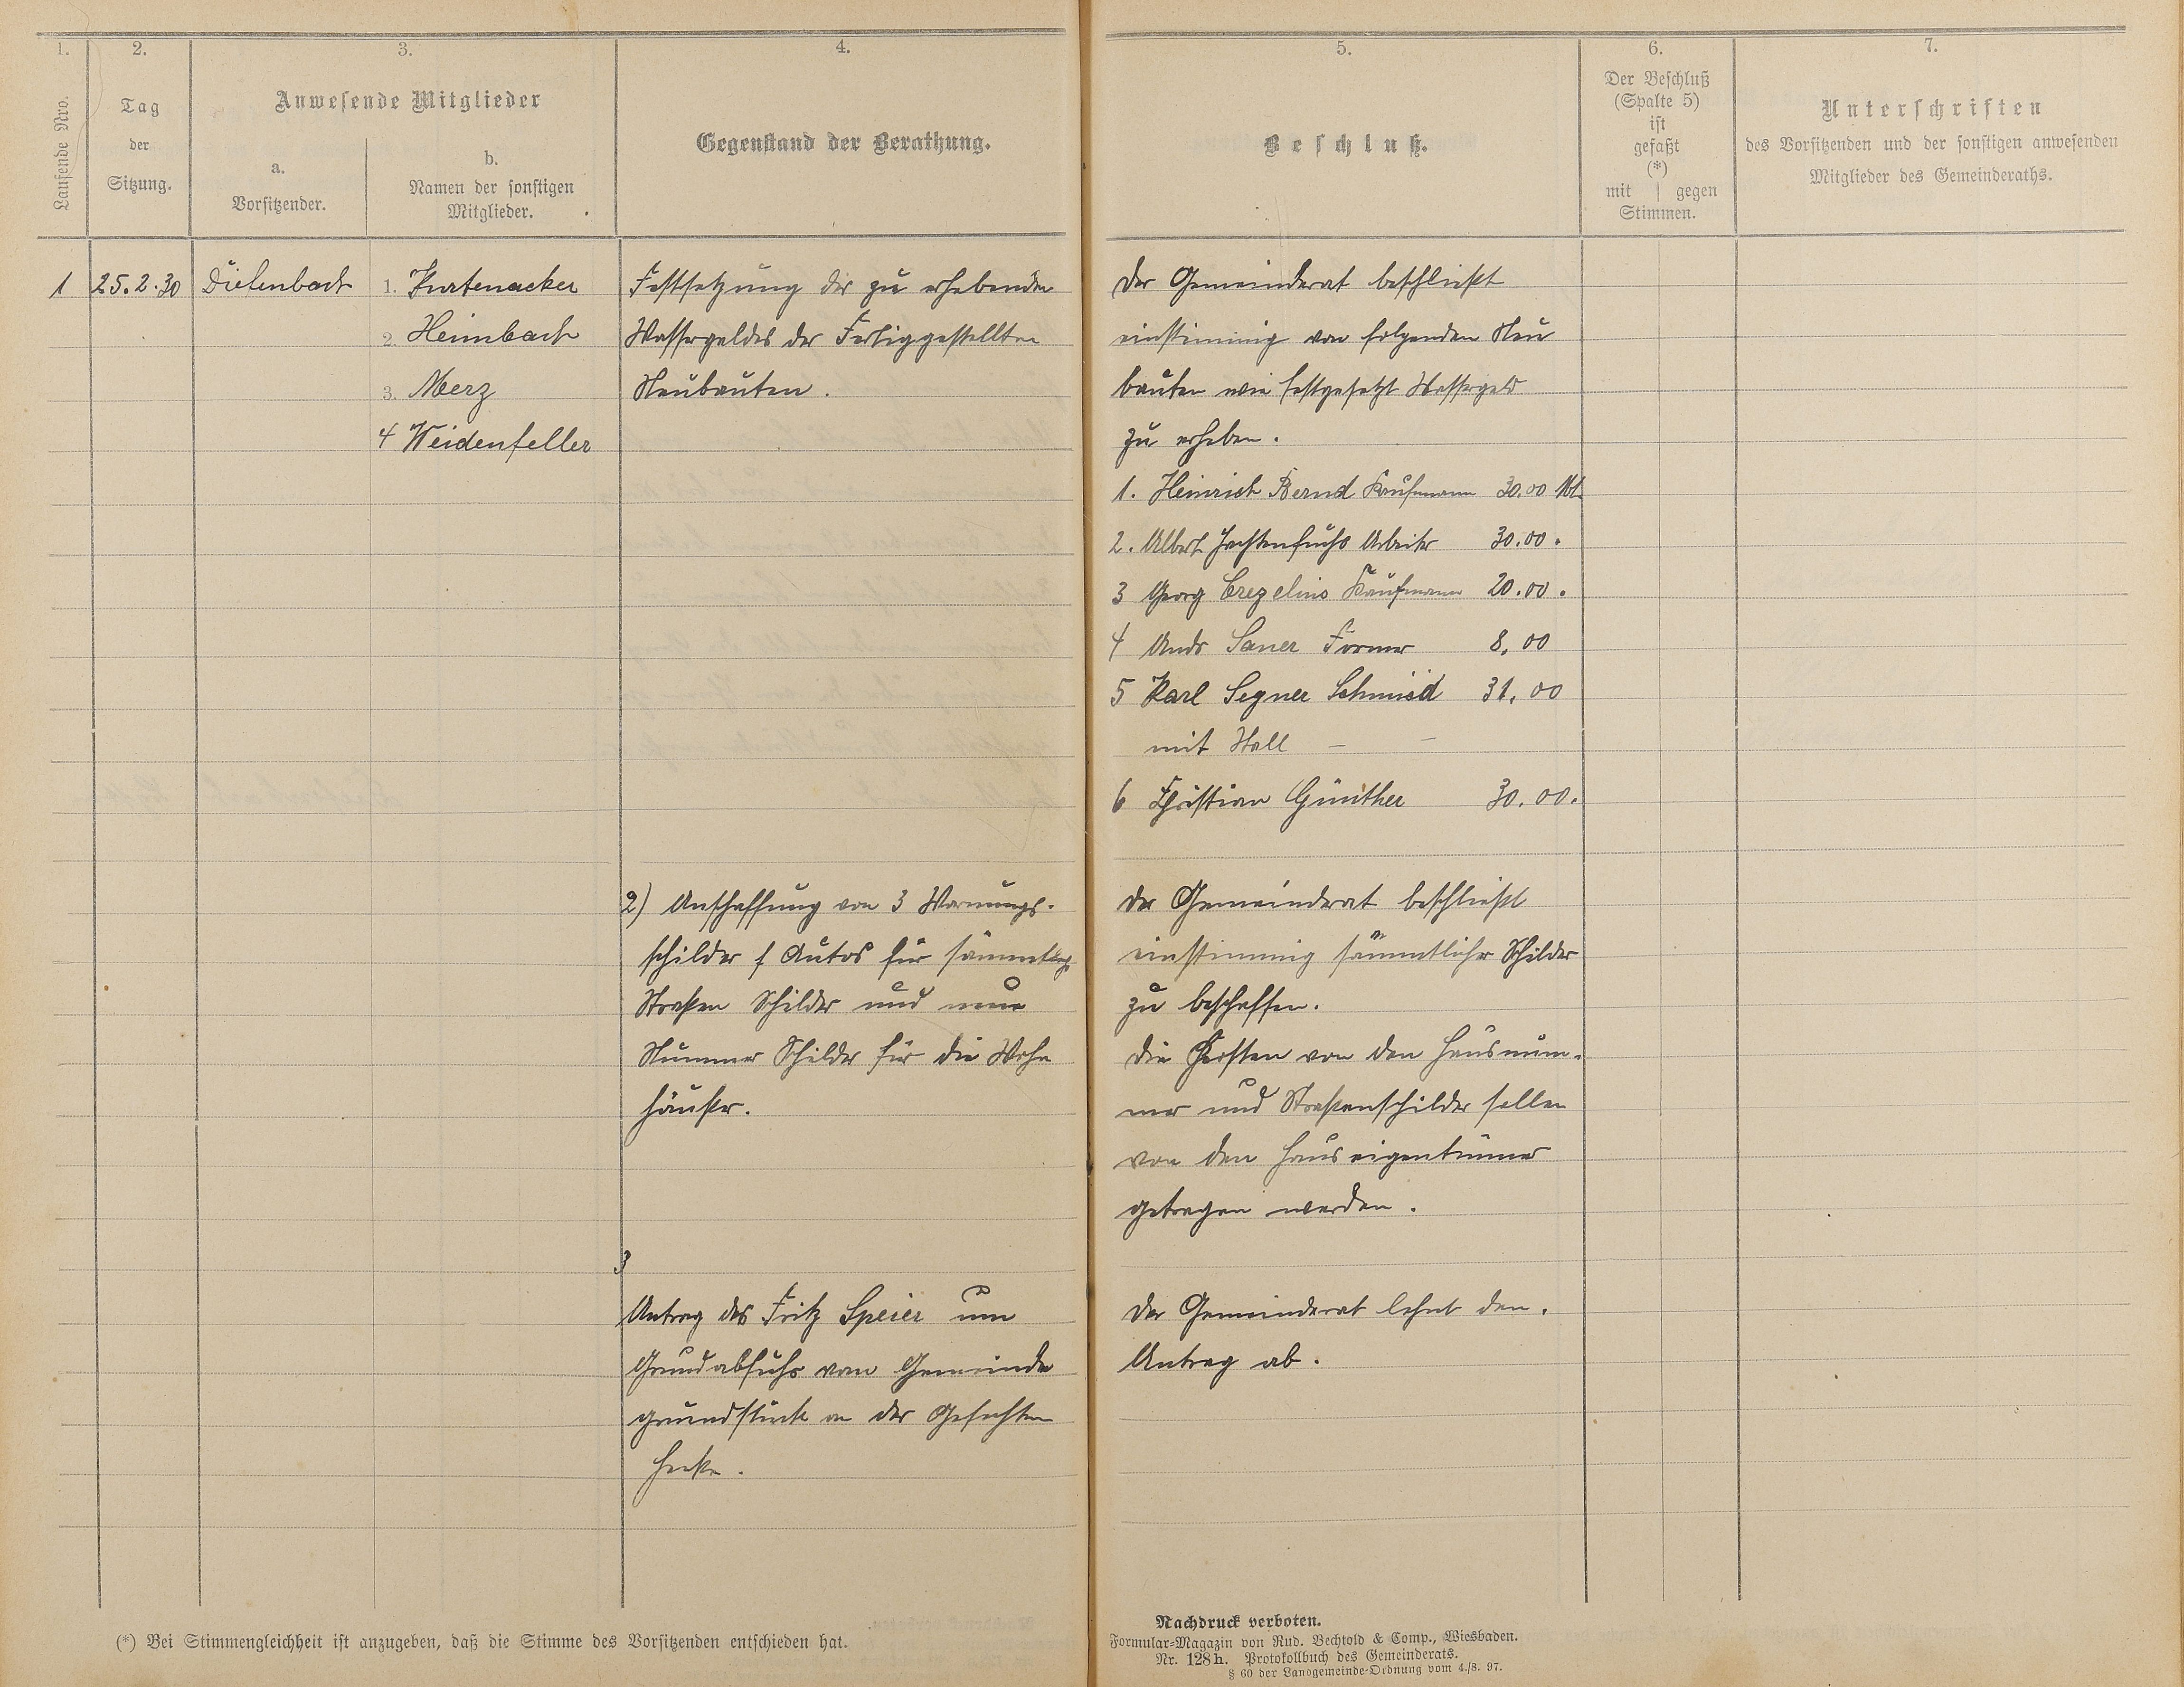 1.
2.
3.
4.
Laufende Nro.
Tag
der
Sitzung.
Anwesende Mitglieder
a.
Vorsitzender.
b.
Namen der sonstigen
Mitglieder.
Gegenstand der Berathung.
1 25.2.30 Dietenbach 1. Kurtenacker
2. Heimbach
3. Merz
4 Weidenfeller
Festsetzung des zu erhebenden
Wassergeldes der Fertiggestellten
Neubauten.
2) Anschaffung von 3 Warnungs-
schilder f Autos für sämmtliche
Straßen Schilder und neue
Nummer Schilder für die Wohn
häuser.
3
Antrag des Fritz Speier um
Grundabfuhr vom Gemeinde
grundstück an der
Hecke.
(*) Bei Stimmengleichheit ist anzugeben, daß die Stimme des Vorsitzenden entschieden hat.
5.
6.
7.
Beschluß.
Der Beschluß
(Spalte 5)
ist
gefaßt
(*)
mit | gegen
Stimmen.
Unterschriften
des Vorsitzenden und der sonstigen anwesenden
Mitglieder des Gemeinderaths.
Der Gemeinderat beschließt
einstimmig von folgenden Neu
bauten wie festgesetzt Wassergeld
zu erheben.
1. Heinrich Bernd Kaufmann 30.00 Mk
2. Albert Arbeiter 30.00.
3 Georg Crezelius Kaufmann 20.00.
4 Andr Saner Former 8,00
5 Karl Segner Schmied 31,00
mit Stall – –
6 Christian Günther 30.00.
Der Gemeinderat beschließt
einstimmig sämmtliche Schilder
zu beschaffen.
Die Kosten von den Hausnum-
mer und Straßenschilder sollen
von den Hauseigentümer
getragen werden.
Der Gemeinderat lehnt den.
Antrag ab.
Nachdruck verboten.
Formular-Magazin von Rud. Bechtold & Comp., Wiesbaden.
Nr. 128h. Protokollbuch des Gemeinderats.
§ 60 der Landgemeinde-Ordnung vom 4./8. 97.